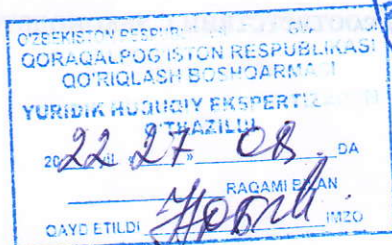 O'ZBEKISTON RESPUBL
QORAQALPOG'ISTON RESPUBLIKASI
QO'RIQLASH BOSHQARMASI
YURIDIK HUQUQIY EKSPERTIZ
O'TKAZILDI
2022 YIL «27» 08 DA
RAQAMI BILAN
QAYD ETILDI IMZO